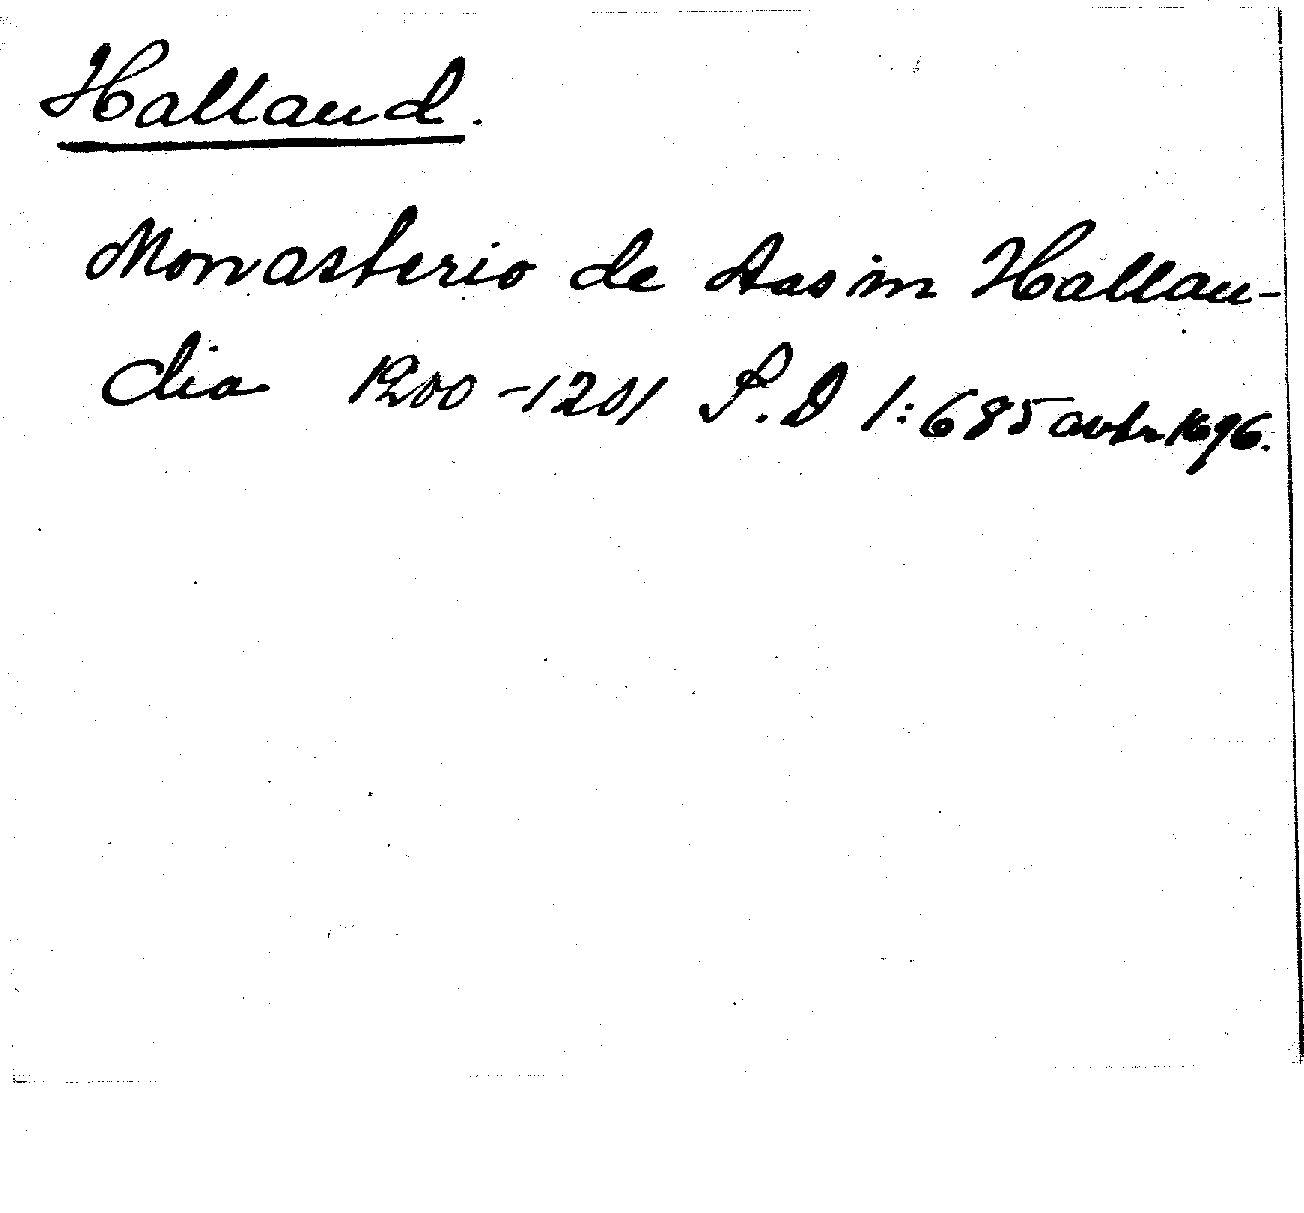 Halland.
Monasterio de Aas im Hallan-
dia 1200-1201 S.D 1:685 avtr 1696.